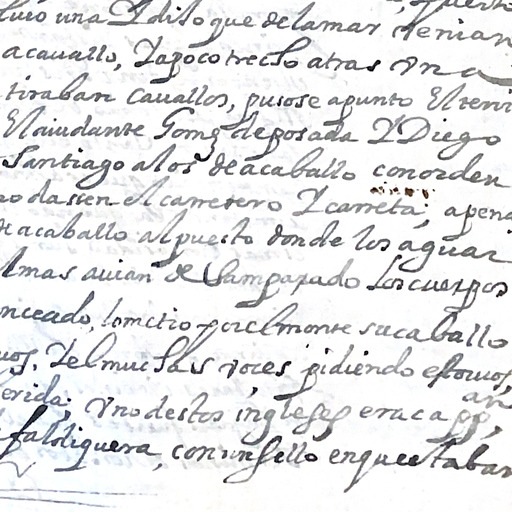 tuvo una Y dijo que de la mar venian
a cauallo, Y a poco trecho atras vna
tiraban cauallos, pusose a punto El teni
El aiudante Gomz de posada Y Diego
Santiago a los de acaballo con orden
no dassen el carretero Y carreta; apena
de acaballo al puesto donde los aguar
lmas auian de Samparado los cuerpos
nceado, lo metio por el monte su caballo
uos. Y el muchas voces, pidiendo
erida; Vno destos ingleses era cap an,
faldiquera, con un sello en que estaban